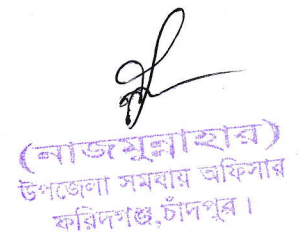 (নাজমুন্নাহার)
উপজেলা সমবায় অফিসার
ফরিদগঞ্জ,চাঁদপুর।